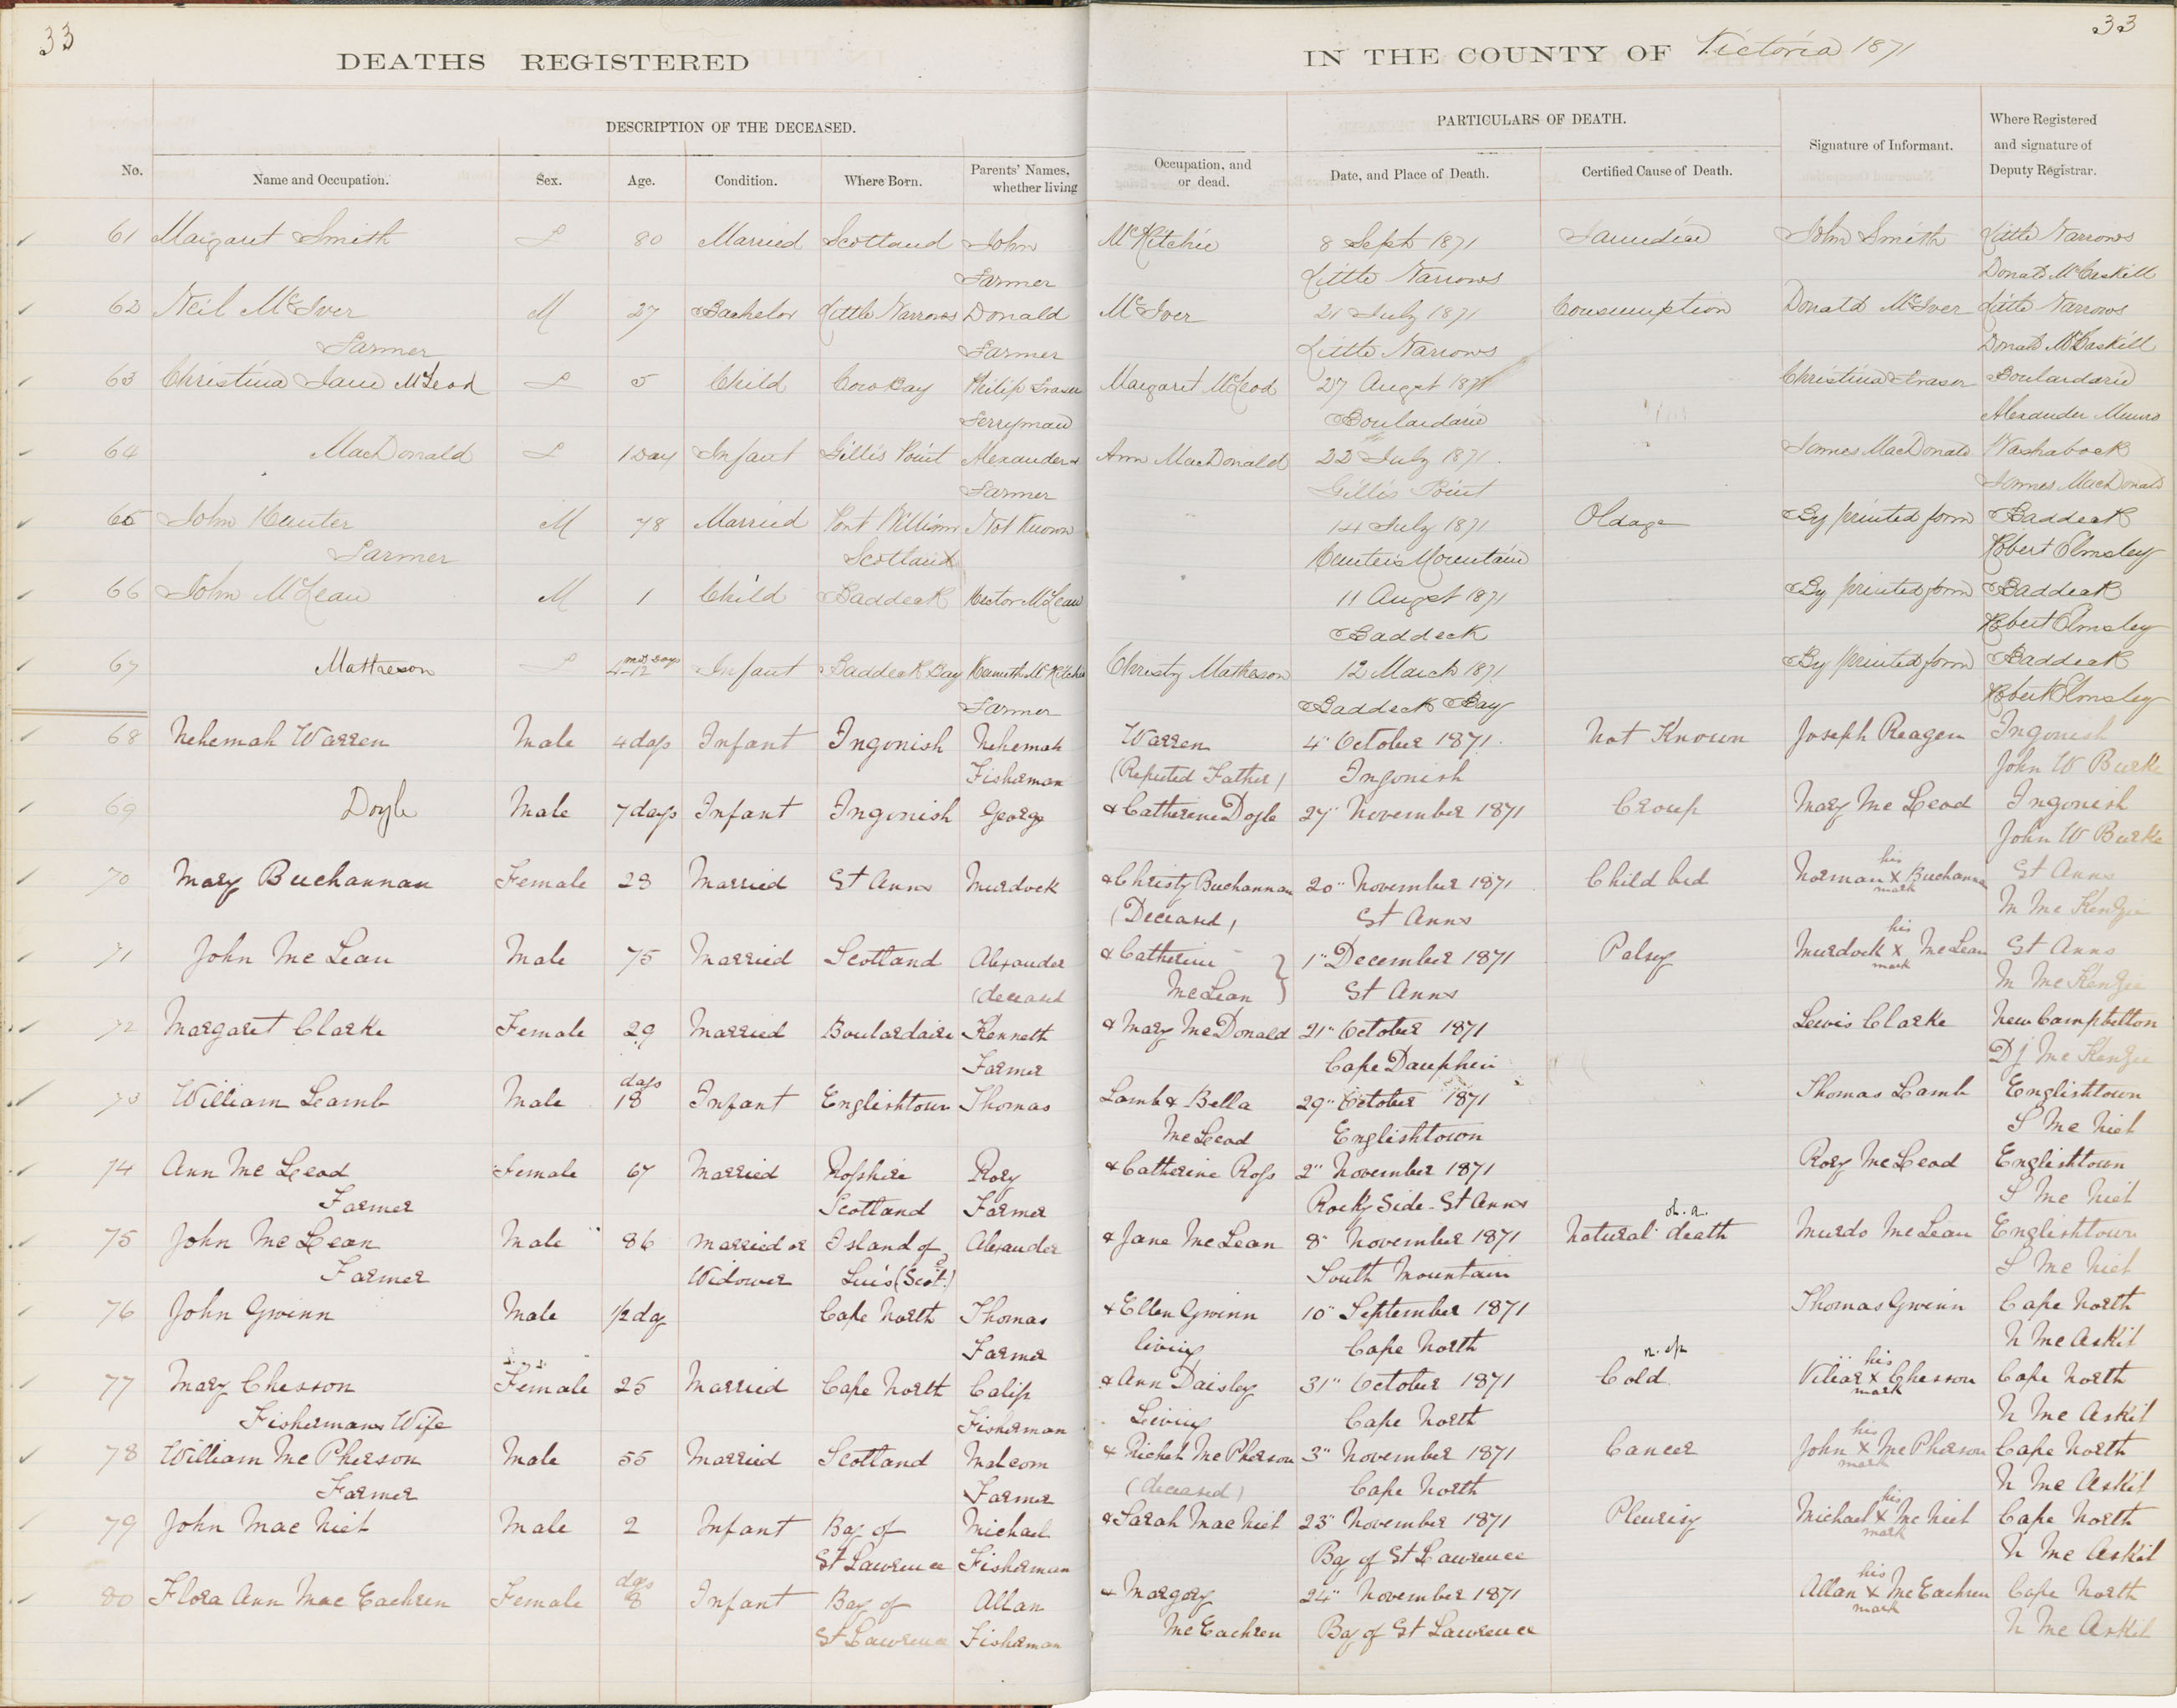 33
33
DEATHS REGISTERED IN THE COUNTY OF Victoria 1871
DESCRIPTION OF THE DECEASED. PARTICULARS OF DEATH. Signature of Informant. Where Registered and signature of Deputy Registrar.
No. Name and Occupation. Sex. Age. Condition. Where Born. Parents' Names, whether living Occupation, and or dead. Date, and Place of Death. Certified Cause of Death.
61 Margaret Smith F 80 Married Scotland John McRitchie 8 Sept 1871 Jaundice John Smith Little Narrows
Farmer Little Narrows Donald McCaskill
62 Neil McIver M 27 Bachelor Little Narrows Donald McIver 21 July 1871 Consumption Donald McIver Little Narrows
Farmer Farmer Little Narrows Donald McCaskill
63 Christina Jane McLeod F 5 Child Cow Bay Philip Fraser Margaret McLeod 27 August 1871 Christina Fraser Boulardarie
Ferryman Boulardarie Alexander Munro
64 MacDonald F 1 Day Infant Gillis Point Alexander & Ann MacDonald 22 July 1871 James MacDonald Washaback
Farmer Gillis Point James MacDonald
65 John Hunter M 78 Married Port William Not Known 14 July 1871 Oldage By printed form Baddeck
Farmer Scotland Hunters Mountain Robert Elmsley
66 John McLean M 1 Child Baddeck Hector McLean 11 Augst 1871 By printed form Baddeck
Baddeck Robert Elmsley
67 Matheson F 4 mos 12 Days Infant Baddeck Bay Kenneth McRitchie Christy Matheson 12 March 1871 By printed form Baddeck
Farmer Baddeck Bay Robert Elmsley
68 Nehemah Warren Male 4 days Infant Ingonish Nehemah Warren 4" October 1871 Not Known Joseph Reagen Ingonish
Fisherman (Reputed Father) Ingonish John W Burke
69 Doyle Male 7 days Infant Ingonish George & Catherine Doyle 27" November 1871 Croup Mary Mc Leod Ingonish
John W Burke
70 Mary Buchannan Female 23 Married St Anns Murdock & Christy Buchannan 20" November 1871 Child bed Norman his X mark Buchannan St Anns
(Deceased) St Anns M Mc Kenzie
71 John Mc Lean Male 75 Married Scotland Alexander & Catherine 1" December 1871 Palsy Murdock his X mark McLean St Anns
(deceased McLean } St Anns M Mc Kenzie
72 Margaret Clarke Female 29 Married Boulardaire Kenneth & Mary McDonald 21" October 1871 Lewis Clarke New Campbelton
Farmer Cape Dauphin DJ Mc Kenzie
73 William Leamb Male 18 days Infant Englishtown Thomas Lamb & Bella 29" October 1871 Thomas Lamb Englishtown
McLeod Englishtown S Mc Niel
74 Ann Mc Leod Female 67 Married Rosshire Rory & Catherine Ross 2" November 1871 Rory McLeod Englishtown
Farmer Scotland Farmer Rocky Side - St Anns S Mc Niel
75 John Mc Lean Male 86 Married or Island of Alexander & Jane McLean 8" November 1871 Natural death Murdo McLean Englishtown
Farmer Widower Luis (Scot.) South Mountain S Mc Niel
76 John Gwinn Male 1/2 day Cape North Thomas & Ellen Gwinn 10" September 1871 Thomas Gwinn Cape North
Farmer living Cape North N Mc Askil
77 Mary Chesson Female 25 Married Cape North Calip & Ann Daisley 31" October 1871 Cold his X mark Chesson Cape North
Fishermans Wife Fisherman Living Cape North N Mc Askil
78 William Mc Pherson Male 55 Married Scotland Malcom & Richel McPherson 3" November 1871 Cancer John his X mark McPherson Cape North
Farmer Farmer (deceased) Cape North N Mc Askil
79 John Mac Niel Male 2 Infant Bay of Michael & Sarah MacNiel 23" November 1871 Pleurisy Michael his X mark McNiel Cape North
St Lawrence Fisherman Bay of St Lawrence N Mc Askil
80 Flora Ann Mac Eachren Female 8 days Infant Bay of Allan & Margory 24" November 1871 Allan his X mark McEachren Cape North
St Lawrence Fisherman McEachren Bay of St Lawrence N Mc Askil